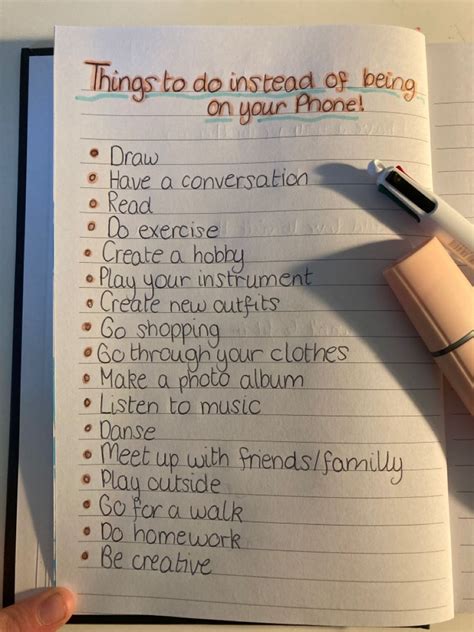 Things to do instead of being
on your Phone!
• Draw
• Have a conversation
• Read
• Do exercise
• Create a hobby
• Play your instrument
• Create new outfits
• Go shopping
• Go through your clothes
• Make a photo album
• Listen to music
• Danse
• Meet up with friends/familly
• Play outside
• Go for a walk
• Do homework
• Be creative